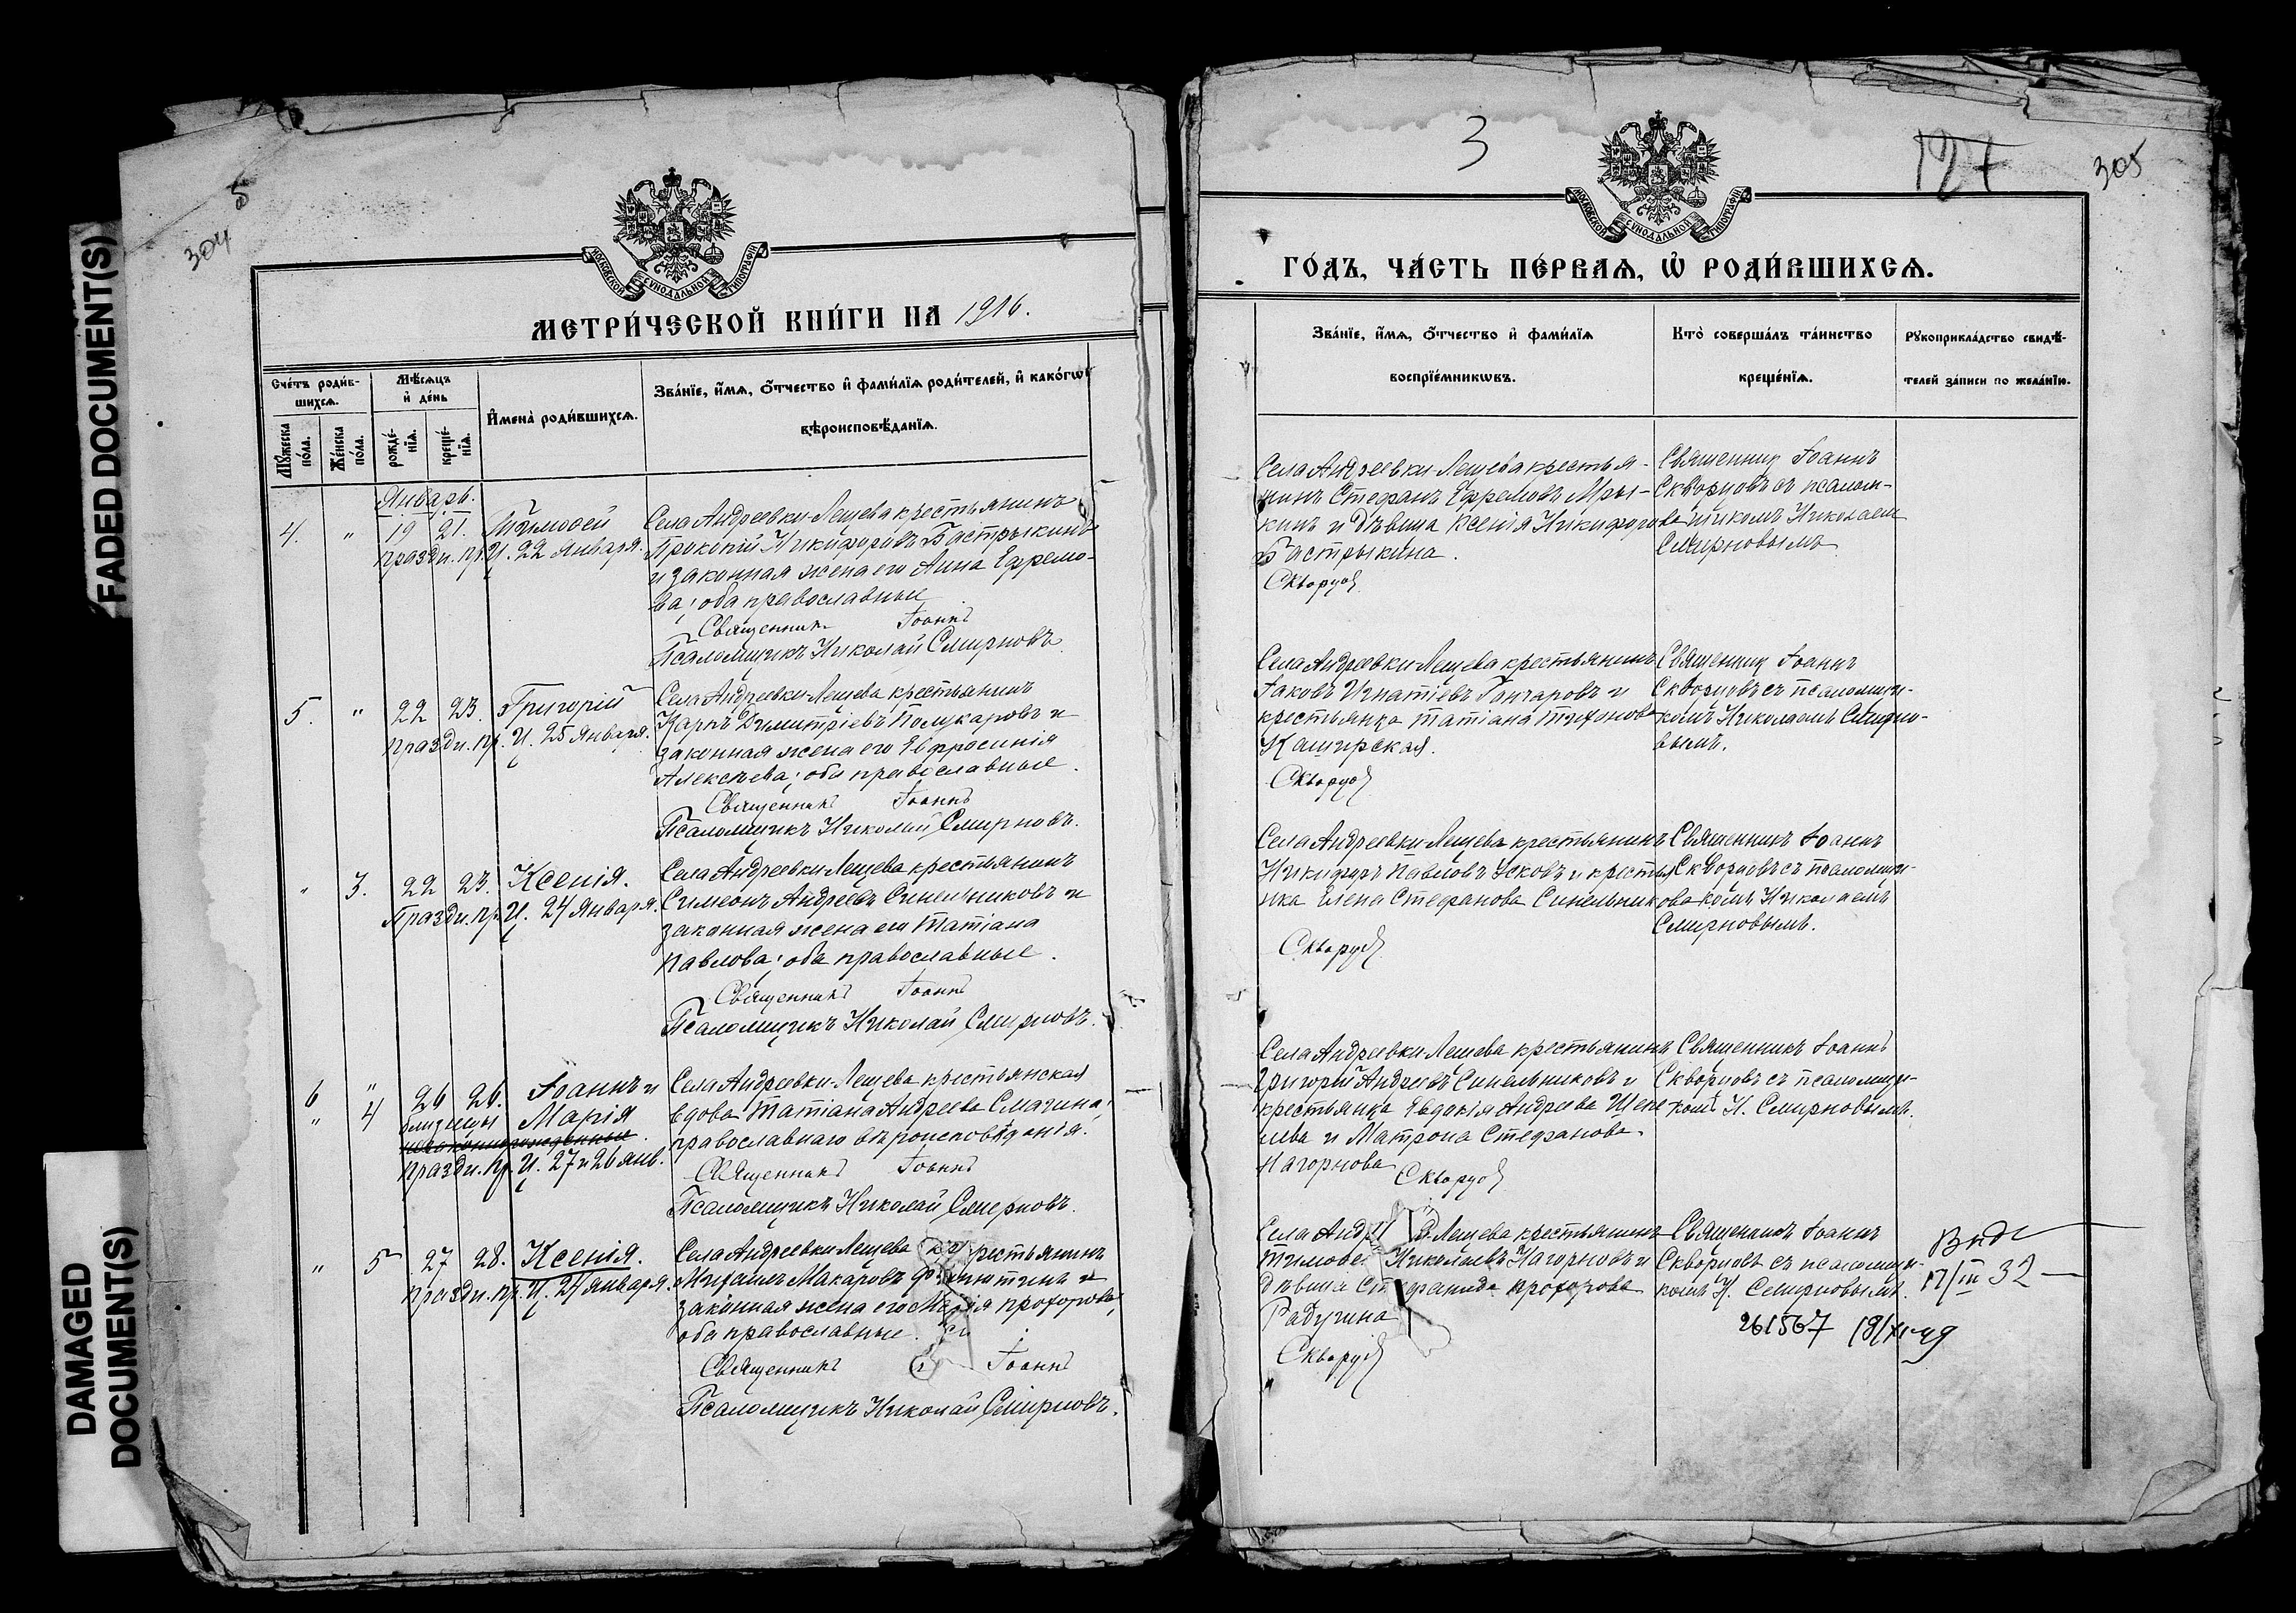 FADED DOCUMENT(S)
DAMAGED
DOCUMENT(S)
304
МОСКОВСКОЙ СѴНОДАЛЬНОЙ ТИПОГРАФІИ
МЕТРИ́ЧЕСКОЙ КНИ́ГИ НА 1916.
Сче́тъ роди́в-
шихсѧ.
Мѣ́сѧцъ
и҆ де́нь
И҆мена̀ роди́вшихсѧ.
Зва́нїе, и҆́мѧ, ѻ҆́тчество и҆ фами́лїѧ роди́телей, и҆ како́гѡ
вѣроисповѣ́данїѧ.
Мꙋ́жеска
по́ла.
Же́нска
по́ла.
рожде́-
нїѧ.
креще́-
нїѧ.
Январь.
4. " 19 21. Тимофей
Праздн. пр. Ц. 22 Января.
Села Андреевки-Лещева крестьянинъ
Прокопій Никифоровъ Бастрыкинъ
и законная жена его Анна Ефремо-
ва; оба православные
Священникъ Іоаннъ
Псаломщикъ Николай Смирновъ
5. " 22 23. Григорій
Праздн. пр. Ц. 25 Января.
Села Андреевки-Лещева крестьянинъ
Карпъ Димитріевъ Поликаровъ и
законная жена его Евфросинія
Алексѣева; оба православные.
Священникъ Іоаннъ
Псаломщикъ Николай Смирновъ.
" 3. 22 23. Ксенія.
Праздн. пр. Ц. 24 Января.
Села Андреевки Лещева крестьянинъ
Симеонъ Андреевъ Синельниковъ и
законная жена его Татіана
Павлова; оба православные.
Священникъ Іоаннъ
Псаломщикъ Николай Смирновъ.
6 " 26 26. Іоаннъ и
" 4 близнецы Марія
незаконнорожденные.
Праздн. пр. Ц. 27 и 26 янв.
Села Андреевки-Лещева крестьянская
вдова Татіана Андреева Смагина;
православнаго вѣроисповѣданія.
Священникъ Іоаннъ
Псаломщикъ Николай Смирновъ.
" 5 27 28. Ксенія.
Праздн. пр. Ц. 24 января.
Села Андреевки Лещева крестьянинъ
Михаилъ Макаровъ и
законная жена его Марія Прохорова,
оба православные.
Священникъ Іоаннъ
Псаломщикъ Николай Смирновъ.
3
127
305
МОСКОВСКОЙ СѴНОДАЛЬНОЙ ТИПОГРАФІИ
ГО́ДЪ, ЧА́СТЬ ПЕ́РВАѦ, Ѡ҆ РОДИ́ВШИХСѦ.
Зва́нїе, и҆́мѧ, ѻ҆́тчество и҆ фами́лїѧ
воспрїе́мникѡвъ.
Кто̀ соверша́лъ та́инство
креще́нїѧ.
Рꙋкоприкла́дство свидѣ́-
телей за́писи по жела́нїю.
Села Андреевки Лещева крестья-
нинъ Стефанъ Ефремовъ Мры-
кинъ и дѣвица Ксенія Никифорова
Бастрыкина.
Скворцов
Священник Іоаннъ
Скворцовъ съ псалом-
щикомъ Николаем
Смирновымъ
Села Андреевки Лещева крестьянинъ
Іаковъ Игнатіевъ Гончаровъ и
крестьянка Татіана Тихонова
Каширская.
Скворцов
Священник Іоаннъ
Скворцовъ съ псаломщи-
комъ Николаемъ Смирно-
вымъ.
Села Андреевки Лещева крестьянинъ
Никифоръ Павловъ Усковъ и крестья
нка Елена Стефанова Синельникова
Скворцов
Священникъ Іоаннъ
Скворцовъ съ псаломщи-
комъ Николаемъ
Смирновымъ.
Села Андреевки Лещева крестьянинъ
Григорій Андреевъ Синельниковъ и
крестьянка Евдокія Андреева
и Матрона Стефанова
Нагорнова
Скворцов
Священникъ Іоаннъ
Скворцовъ съ псаломщи-
комъ Н. Смирновымъ.
Села Лещева крестьянинъ
Тимофей Николаевъ Нагорновъ и
дѣвица Стефанида Прохорова
Радугина
Скворцов
Священникъ Іоаннъ
Скворцовъ съ псаломщи-
комъ Н. Смирновымъ.
17/III 32
261567